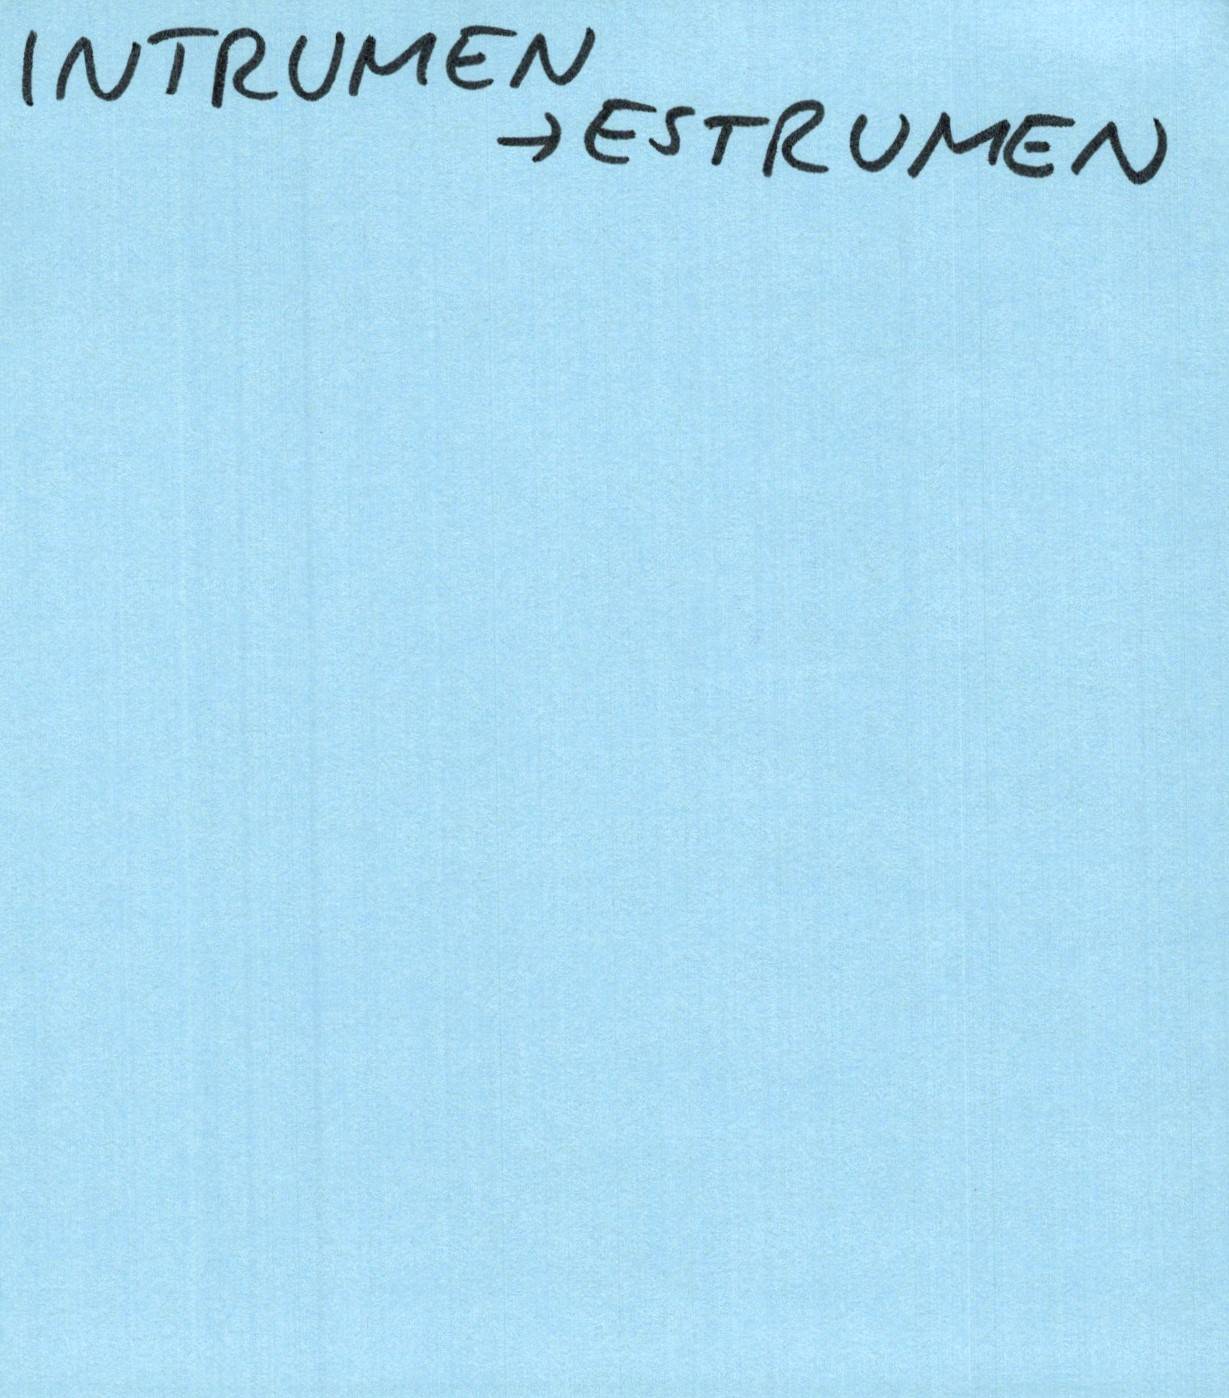 INTRUMEN
→ESTRUMEN